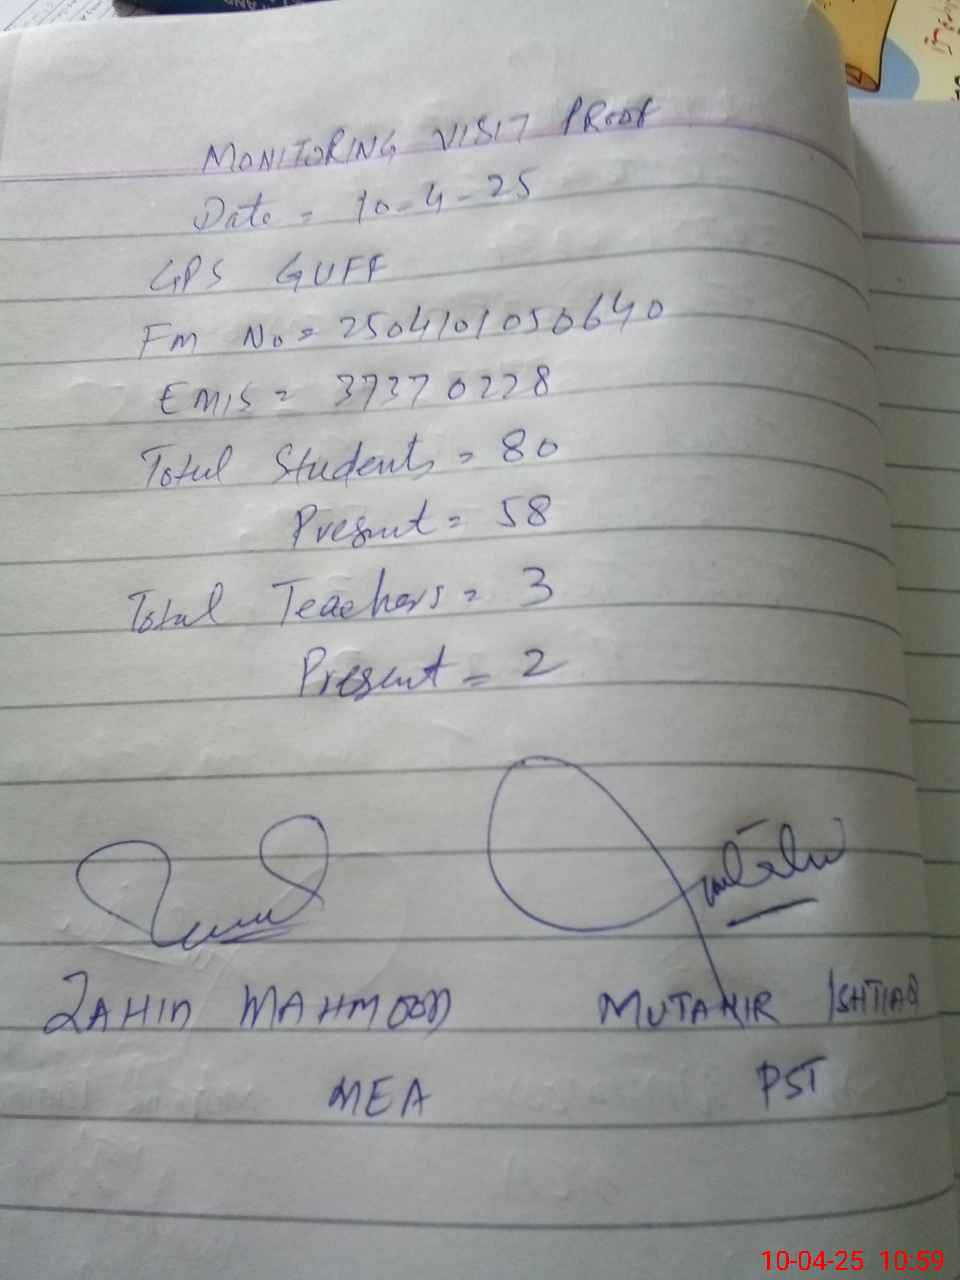 MONITORING VISIT PROOF
Date = 10-4-25
GPS GUFF
Fm No = 2504101050640
EMIS = 37370228
Total Students = 80
Present = 58
Total Teachers = 3
Present = 2
ZAHID MAHMOOD
MUTAHIR ISHTIAQ
MEA
PST
10-04-25 10:59